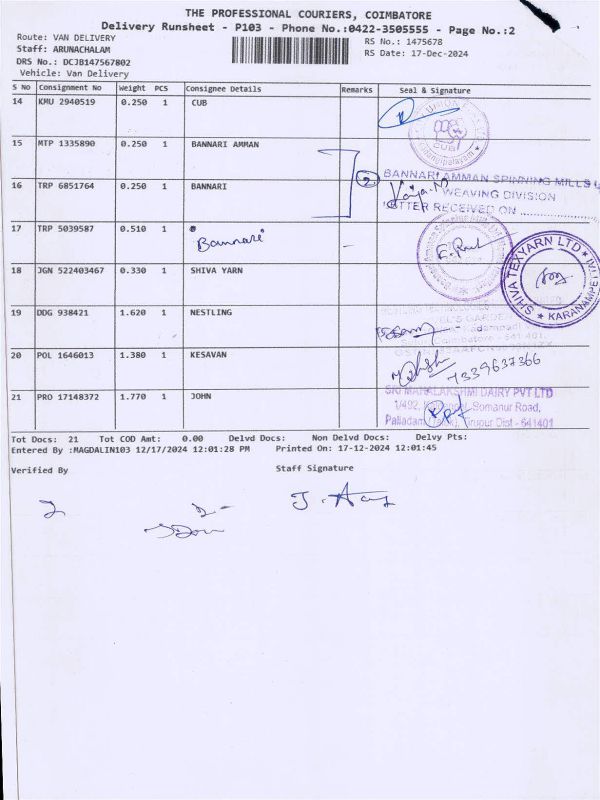 THE PROFESSIONAL COURIERS, COIMBATORE
Delivery Runsheet - P103 - Phone No.:0422-3505555 - Page No.:2
Route: VAN DELIVERY
RS No.: 1475678
Staff: ARUNACHALAM
RS Date: 17-Dec-2024
DRS No.: DCJB147567802
Vehicle: Van Delivery
S No Consignment No Weight PCS Consignee Details Remarks Seal & Signature
14 KMU 2940519 0.250 1 CUB
UNION
CUB
15 MTP 1335890 0.250 1 BANNARI AMMAN
2 BANNARI AMMAN SPINNING MILLS
16 TRP 6851764 0.250 1 BANNARI
WEAVING DIVISION
RECEIVED ON
17 TRP 5039587 0.510 1 Bannari
18 JGN 522403467 0.330 1 SHIVA YARN
SHIVA TEXYARN LTD
19 DDG 938421 1.620 1 NESTLING
20 POL 1646013 1.380 1 KESAVAN
7339637366
21 PRO 17148372 1.770 1 JOHN
SRI MAHALAKSHMI DAIRY PVT LTD
1/492, Somanur Road,
Palladam Tirupur Dist - 641401
Tot Docs: 21 Tot COD Amt: 0.00 Delvd Docs: Non Delvd Docs: Delvy Pts:
Entered By :MAGDALIN103 12/17/2024 12:01:28 PM Printed On: 17-12-2024 12:01:45
Verified By
Staff Signature